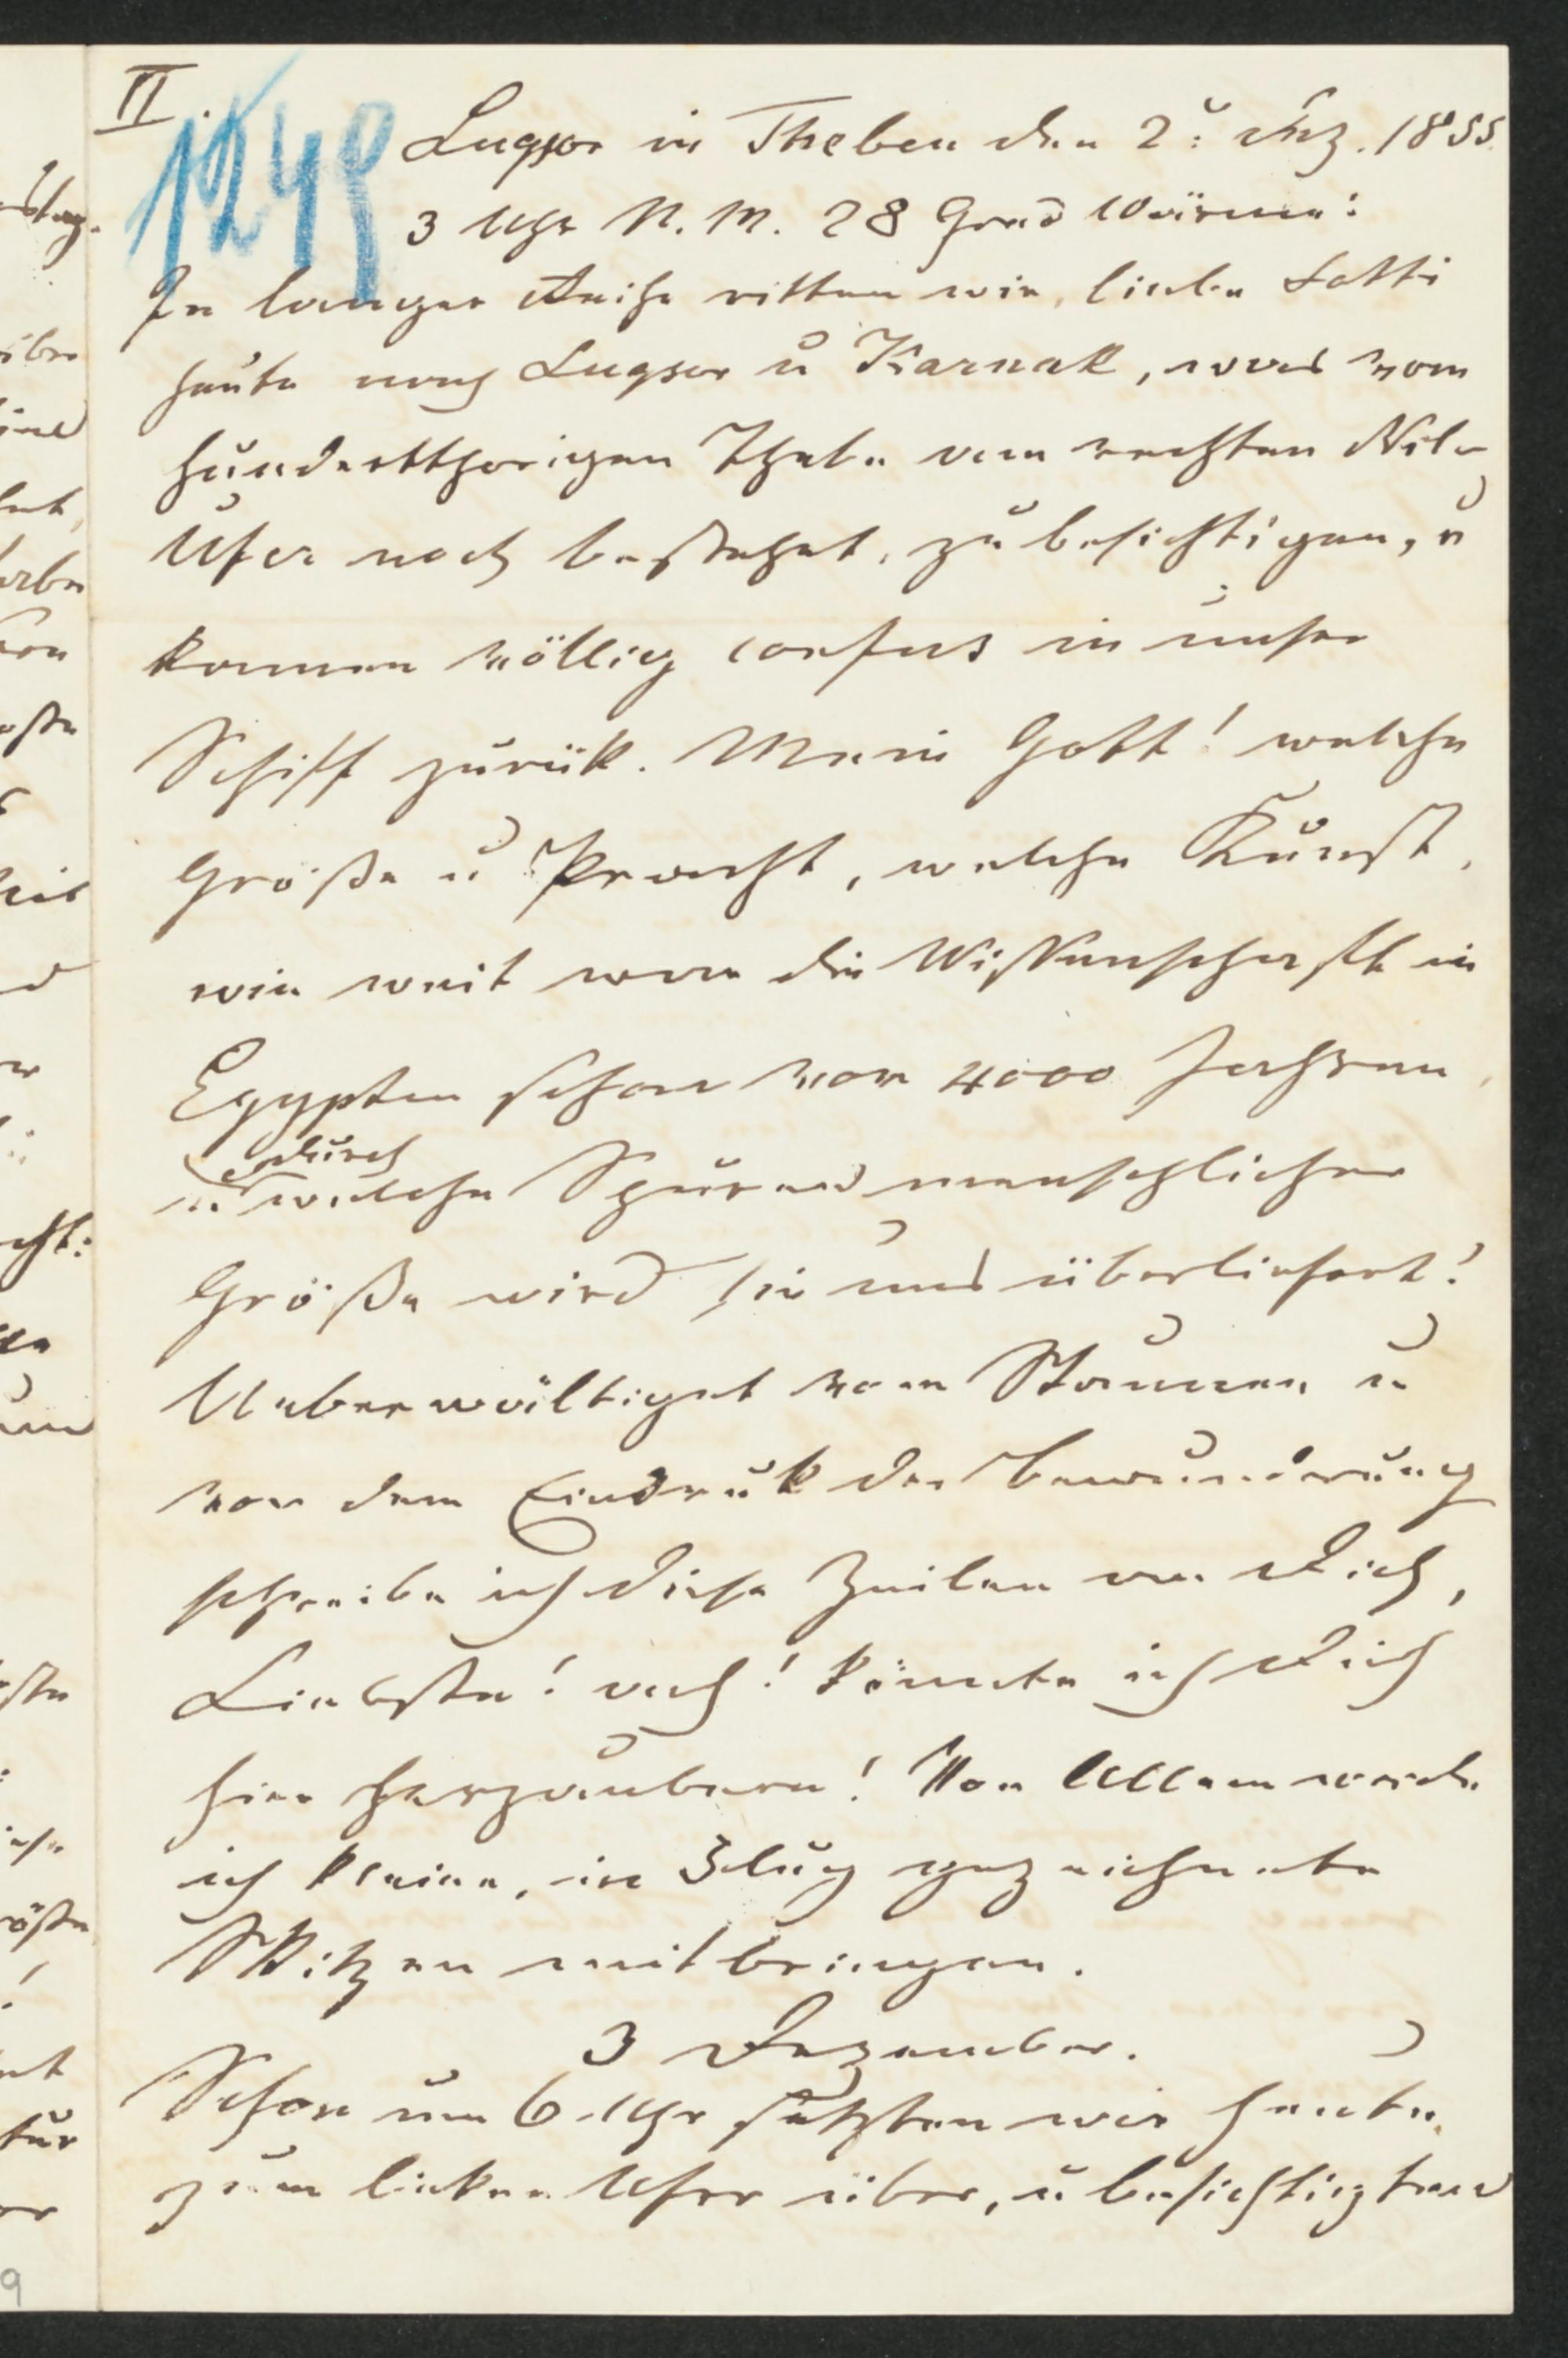 II.
1249
Lugsor in Theben den 2: Dez. 1855.
3 Uhr N. M. 28 Grad Wärme:
In langer Reihe ritten wir, liebe Lotti
heute nach Lugsor u Karnak, was vom
hundertthorigen Thebe am rechten Nil-
Ufer noch bestehet, zu besichtigen, u
kommen völlig confus in unser
Schiff zurük. Mein Gott! welche
Größe u Pracht, welche Kunst,
wie weit war die Wissenschaft in
Egypten schon vor 4000 Jahren,
durch
u welche Spuren menschlicher
Größe wird sie uns überliefert!
Ueberwältiget vom Staunen u
von dem Eindruk der Bewunderung
schreibe ich diese Zeilen an Dich,
Liebste! ach! könnte ich Dich
hier herzaubern! Von Allem werde
ich kleine, im Flug gezeichnete
Skitzen mitbringen.
3 Dezember.
Schon um 6 Uhr setzten wir heute
zum linken Ufer über, u besichtigten